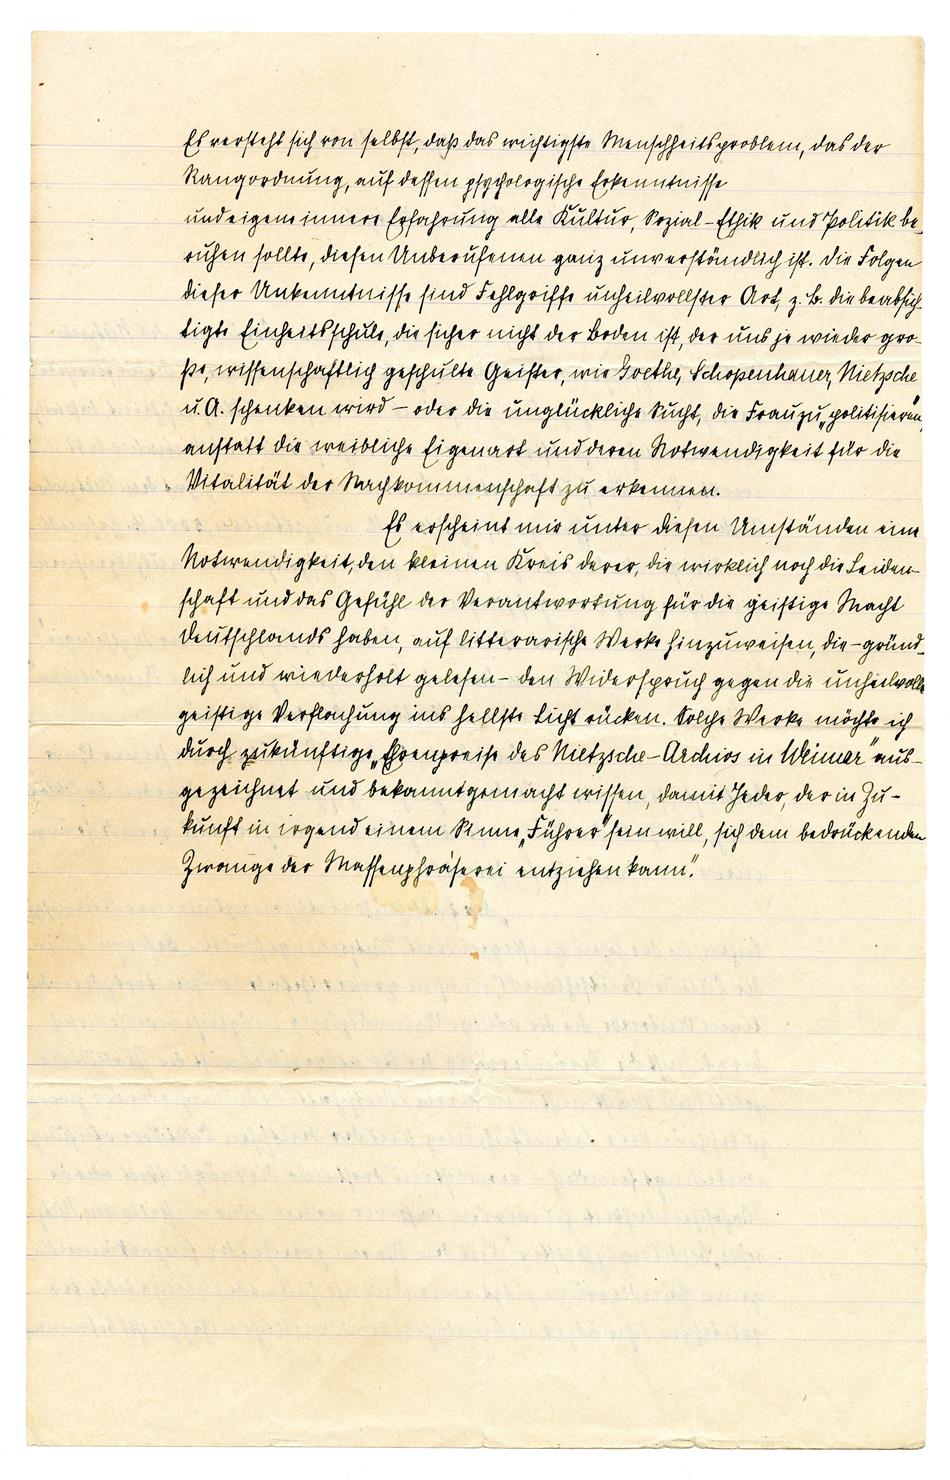 Es versteht sich von selbst, daß das wichtigste Menschheitsproblem, das der
Rangordnung, auf dessen psychologische Erkenntnisse
und eigene innere Erfahrung alle Kultur, Sozial-Ethik und Politik be-
ruhen sollte, diesen Unberufenen ganz unverständlich ist. Die Folgen
dieser Unkenntnisse sind Fehlgriffe unheilvollster Art, z. B. die beabsich-
tigte Einheitsschule, die sicher nicht der Boden ist, der uns je wieder gro-
ße, wissenschaftlich geschulte Geister, wie Goethe, Schopenhauer, Nietzsche
u. A. schenken wird – oder die unglückliche Sucht, die Frau zu „politisieren“,
anstatt die weibliche Eigenart und deren Notwendigkeit für die
Vitalität der Nachkommenschaft zu erkennen.
Es erscheint mir unter diesen Umständen eine
Notwendigkeit, den kleinen Kreis derer, die wirklich noch die Leiden-
schaft und das Gefühl der Verantwortung für die geistige Macht
Deutschlands haben, auf litterarische Werke hinzuweisen, die – gründ-
lich und wiederholt gelesen – den Widerspruch gegen die unheilvolle
geistige Verflachung ins hellste Licht rücken. Solche Werke möchte ich
durch zukünftige „Ehrenpreise des Nietzsche-Archivs in Weimar“ aus-
gezeichnet und bekanntgemacht wissen, damit Jeder, der in Zu-
kunft in irgend einem Sinne „Führer“ sein will, sich dem bedrückenden
Zwange der Massenphräserei entziehen kann.“